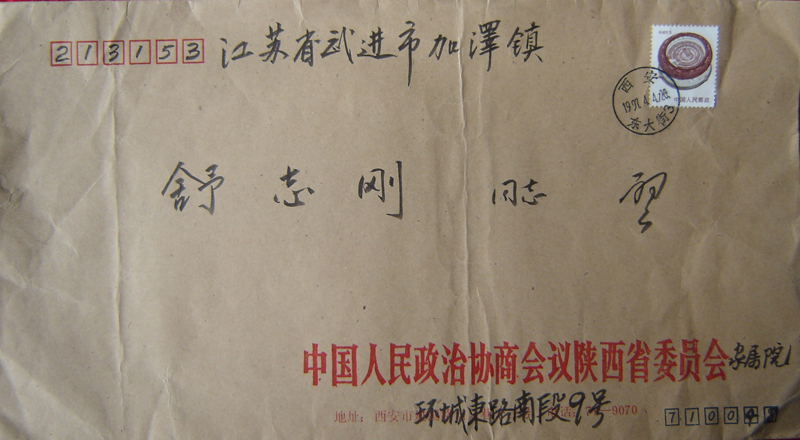 213153 江苏省武进市加泽镇
西安
1997.4.4
东大街3
中国人民邮政
舒志刚 同志
中国人民政治协商会议陕西省委员会家属院
地址: 西安市
环城東路南段9号
9070
7100